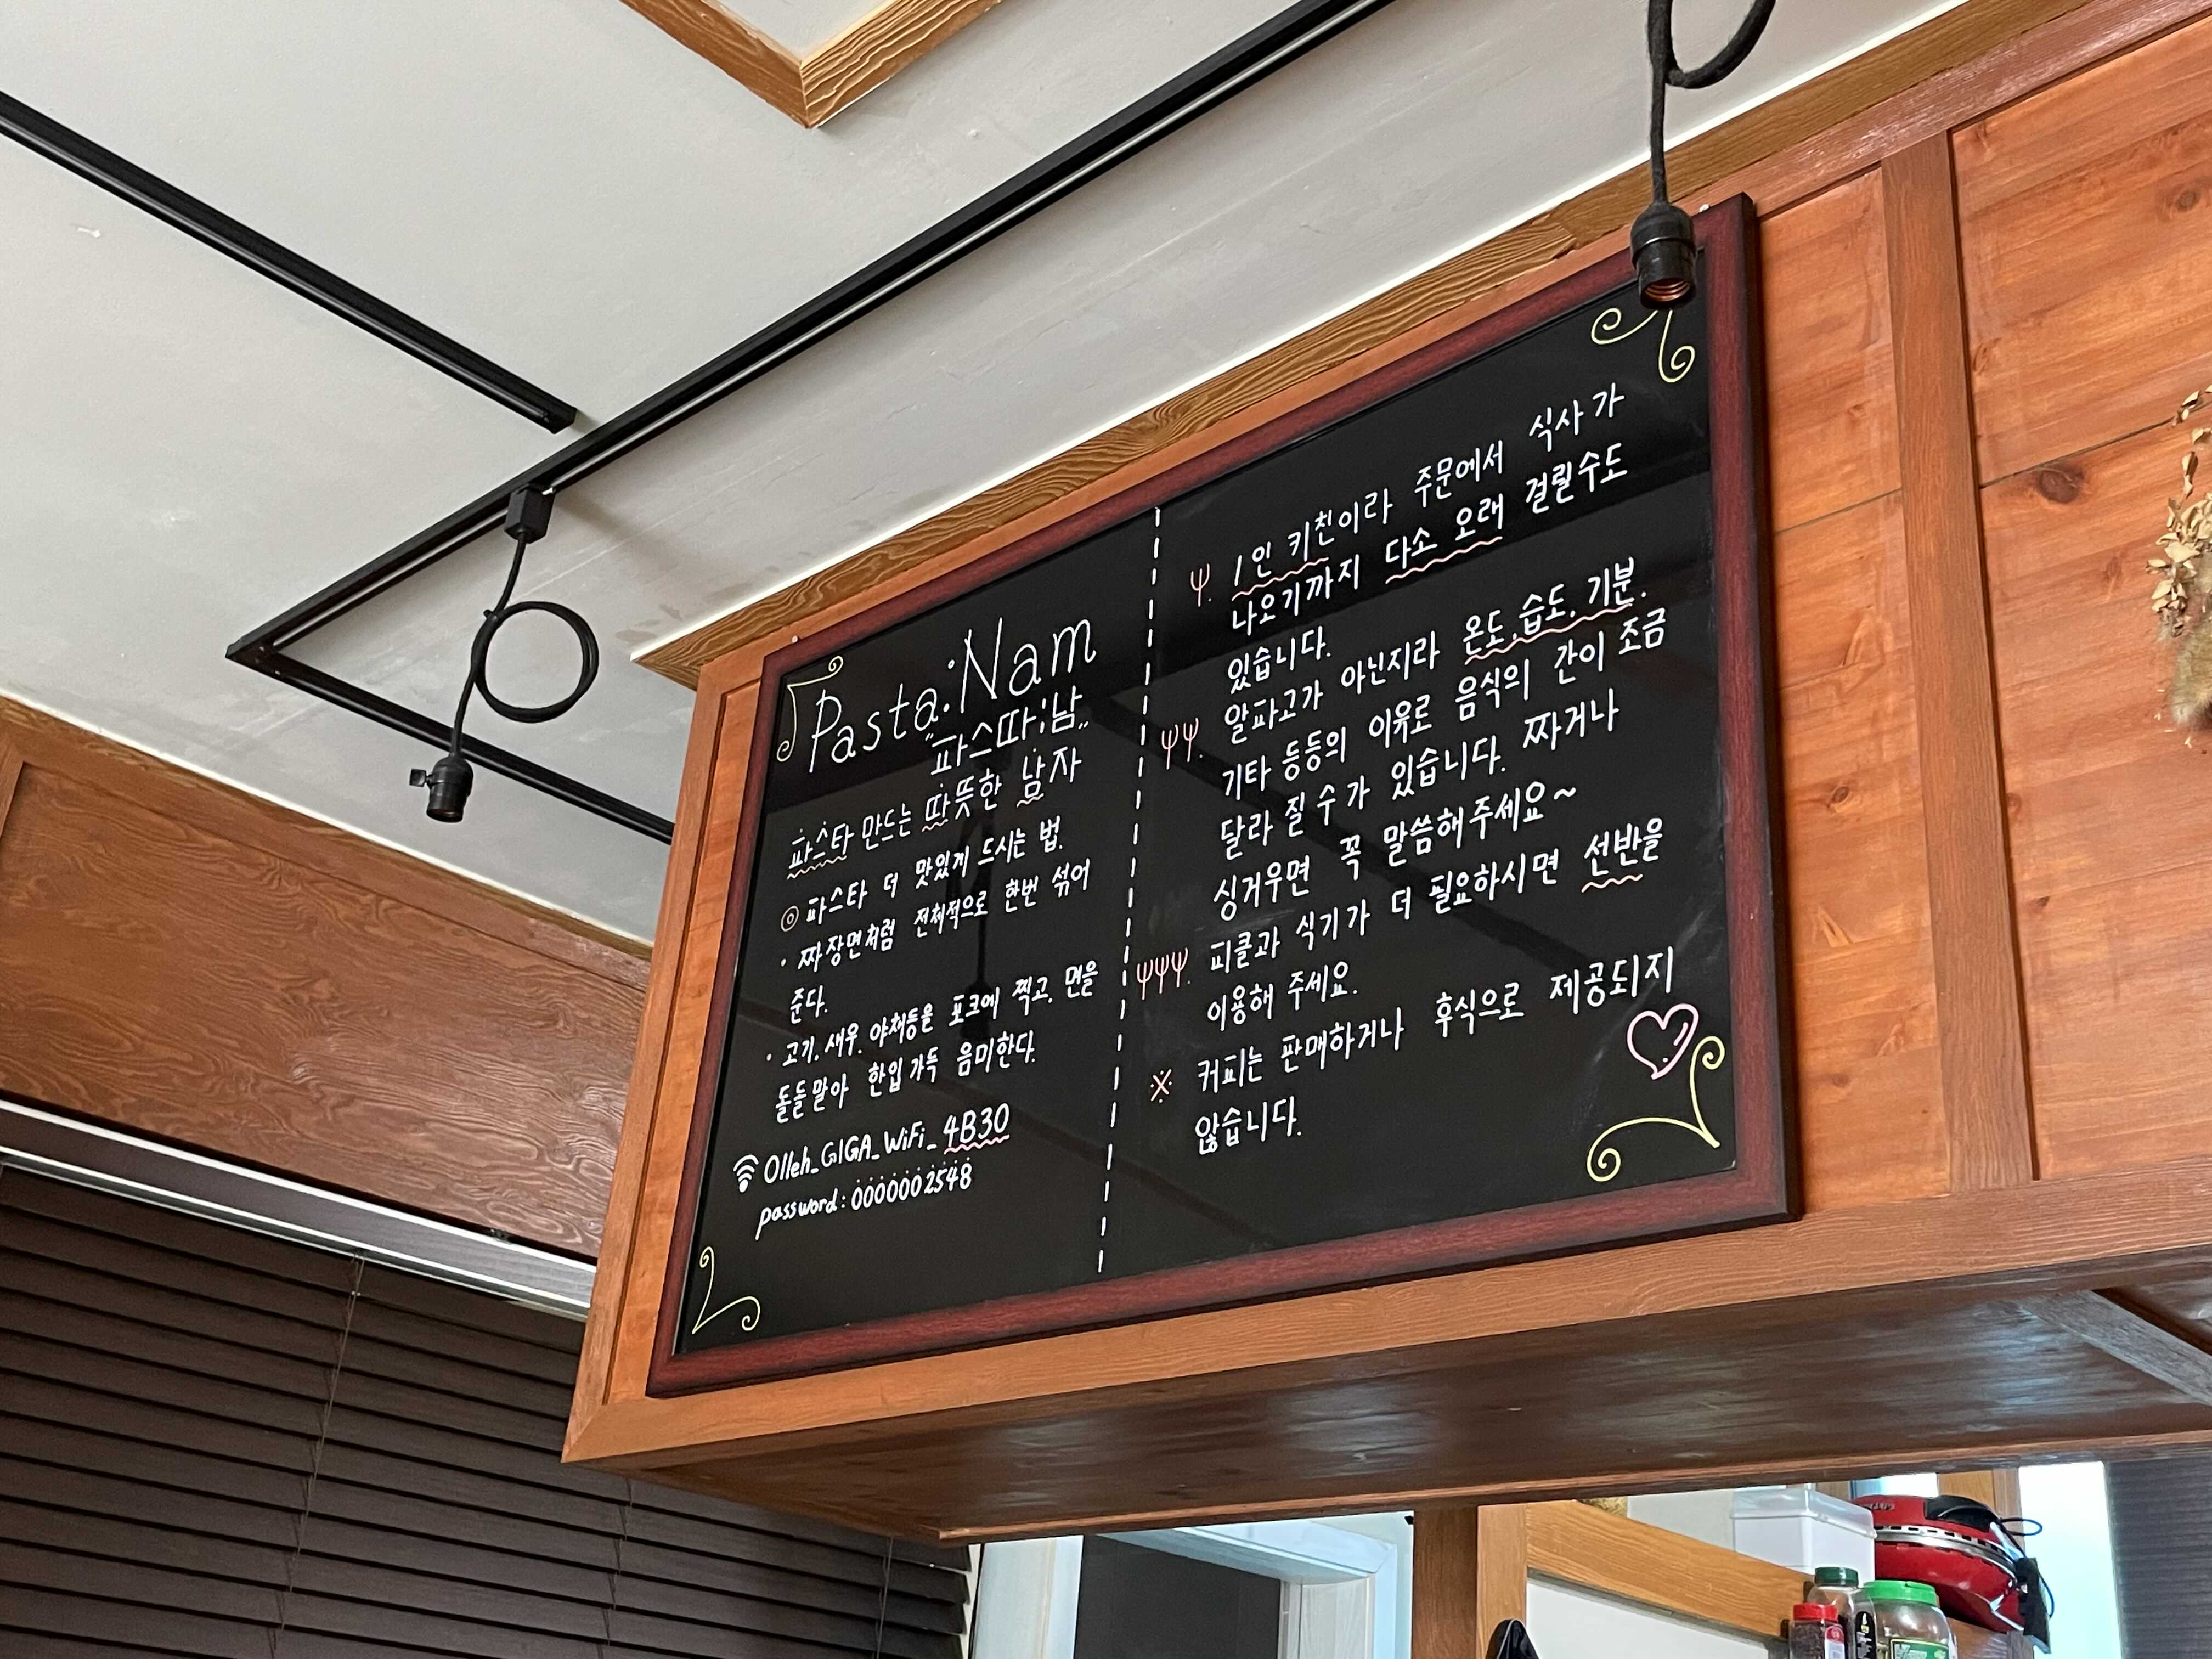 Pasta.Nam
"파스따;남"
파스타 만드는 따뜻한 남자
◎ 파스타 더 맛있게 드시는 법.
· 짜장면처럼 전체적으로 한번 섞어
준다.
· 고기, 새우, 야채등을 포크에 찍고, 면을
돌돌말아 한입가득 음미한다.
Olleh_GIGA_WiFi_4B30
password: 0000002548
1인 키친이라 주문에서 식사가
나오기까지 다소 오래 걸릴수도
있습니다.
알파고가 아닌지라 온도, 습도, 기분,
기타 등등의 이유로 음식의 간이 조금
달라 질수가 있습니다. 짜거나
싱거우면 꼭 말씀해주세요~
피클과 식기가 더 필요하시면 선반을
이용해 주세요.
※ 커피는 판매하거나 후식으로 제공되지
않습니다.